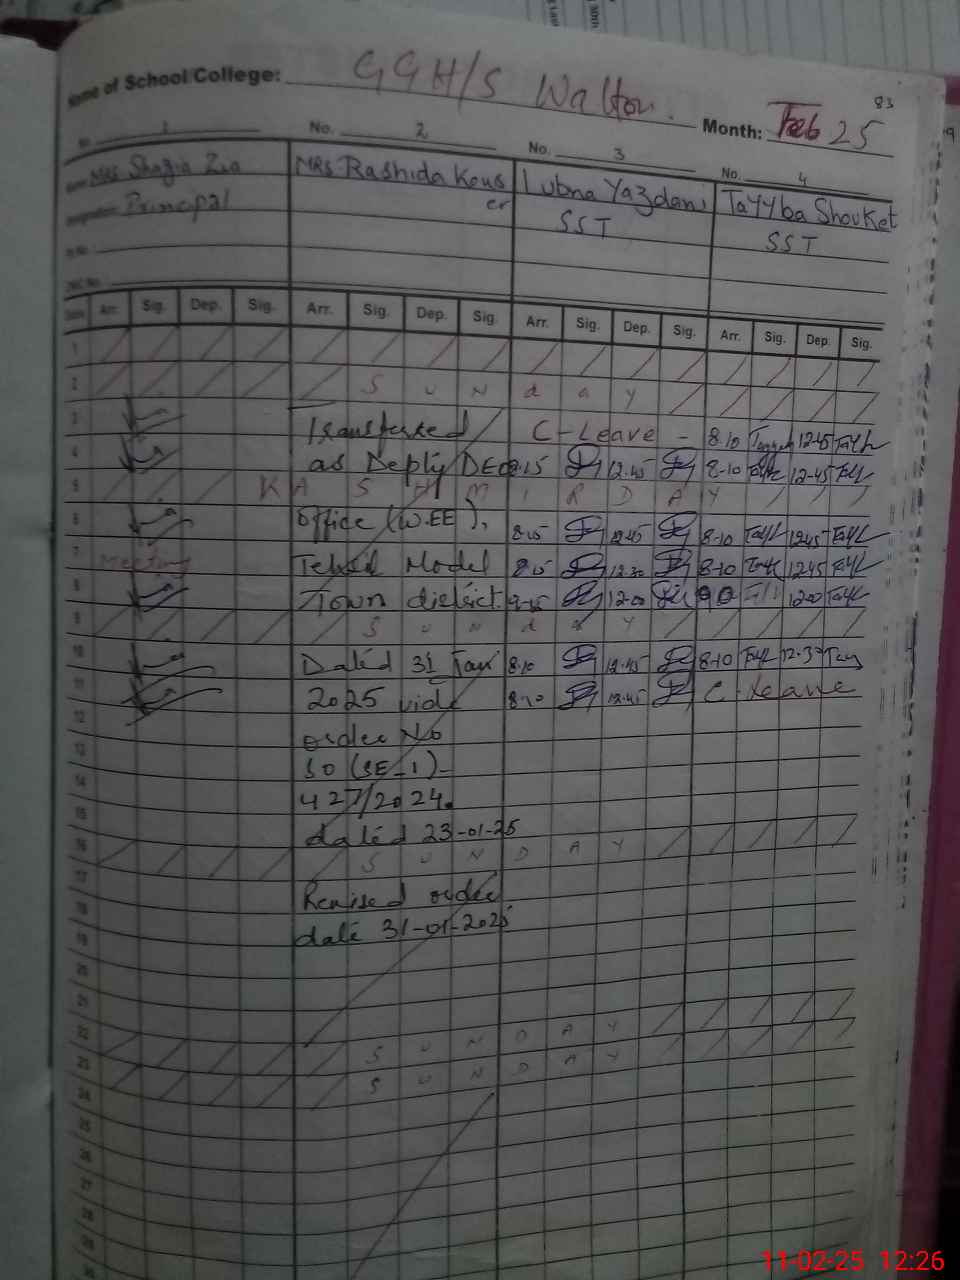 Name of School/College: GGH/S Walton.
83
Month: Feb 25
1 No. 2 No. 3 No. 4
Mrs Shazia Zia MRS. Rashida Kous er Lubna Yazdani Tayyba Shouket
Principal SST SST
Arr. Sig. Dep. Sig. Arr. Sig. Dep. Sig. Arr. Sig. Dep. Sig. Arr. Sig. Dep. Sig.
1
2 S U N d a y
3 Transferred C-Leave - 8.10 12-45
4 as Depty DEO 8.15 12.45 8-10 12-45
5 KASHMIR DAY
6 office (W.EE), 8.15 12.45 8-10 12.45
7 Meeting Tehsil Model 8.15 12.30 8-10 12.45
8 Town district. 12.00 12.00
9 S u n d a y
10 Dated 31 Jan 8.10 12.45 8-10 12.30
11 2025 vide 8.10 12.45 C-Leave
12 order No
13 SO (SE-1)-
14 427/2024.
15 dated 23-01-25
16 S U N D A Y
17 Revised order
18 date 31-01-2025
19
20
21
22 S U N D A Y
23 S U N D A Y
24
25
26
27
28
29
30
11-02-25 12:26